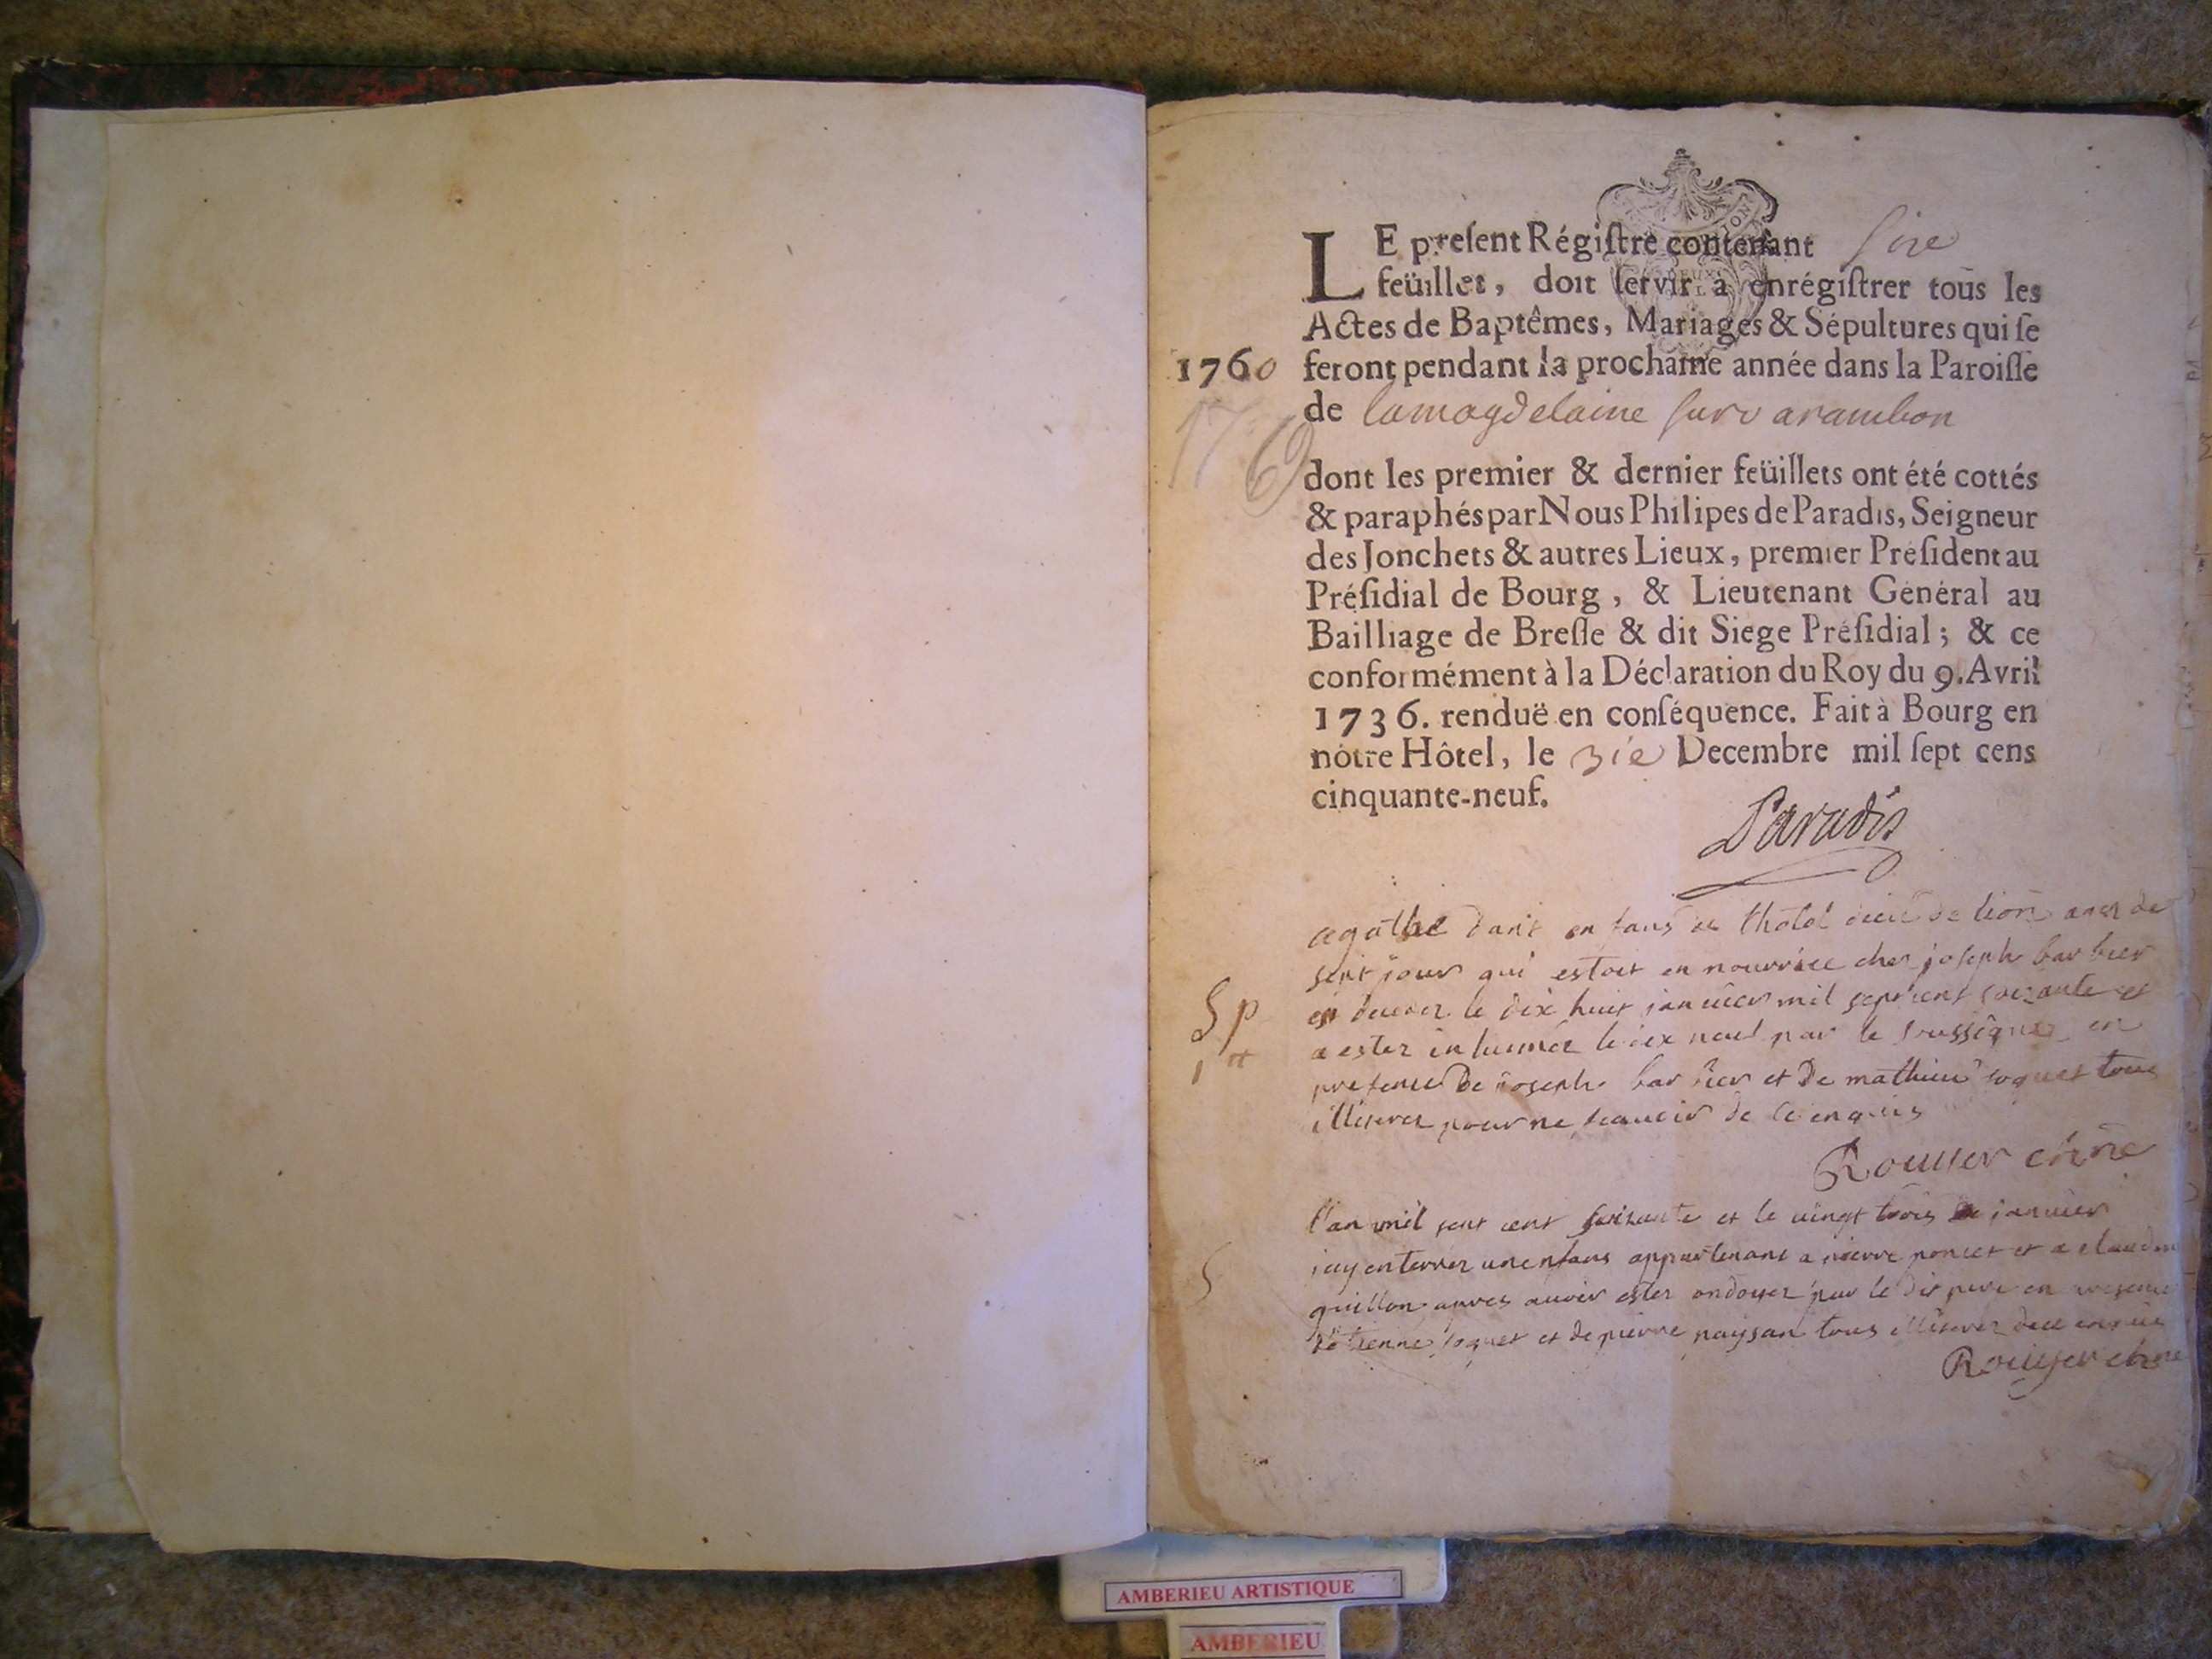 LE preſent Régiſtre contenant
feüillet, doit ſervir à enrégiſtrer tous les
Actes de Baptêmes, Mariages & Sépultures qui ſe
1760 feront pendant la prochaine année dans la Paroiſſe
de lamagdelaine ſur arambon
dont les premier & dernier feüillets ont été cottés
& paraphés par Nous Philipes de Paradis, Seigneur
des Jonchets & autres Lieux, premier Préſident au
Préſidial de Bourg, & Lieutenant Général au
Bailliage de Breſſe & dit Siege Préſidial; & ce
conformément à la Déclaration du Roy du 9. Avril
1736. renduë en conſéquence. Fait à Bourg en
nôtre Hôtel, le 31e Decembre mil ſept cens
cinquante-neuf.
Paradis
agathe en fans de lion de
sept jour qui estoit en nourrice ches joseph barbier
est le dix huit januier mil sept cent et
a ester le dix neuf par le en
presence de joseph barbier et de mathieu tous
pour ne de ce enquis
l'an mil sept cent et le uingt trois januier
jay enterrer un enfans appartenant a pierre poncet et a
guillon apres auoir ester ondoyer par le dit pere en
et de pierre paysan tous
AMBERIEU ARTISTIQUE
AMBERIEU